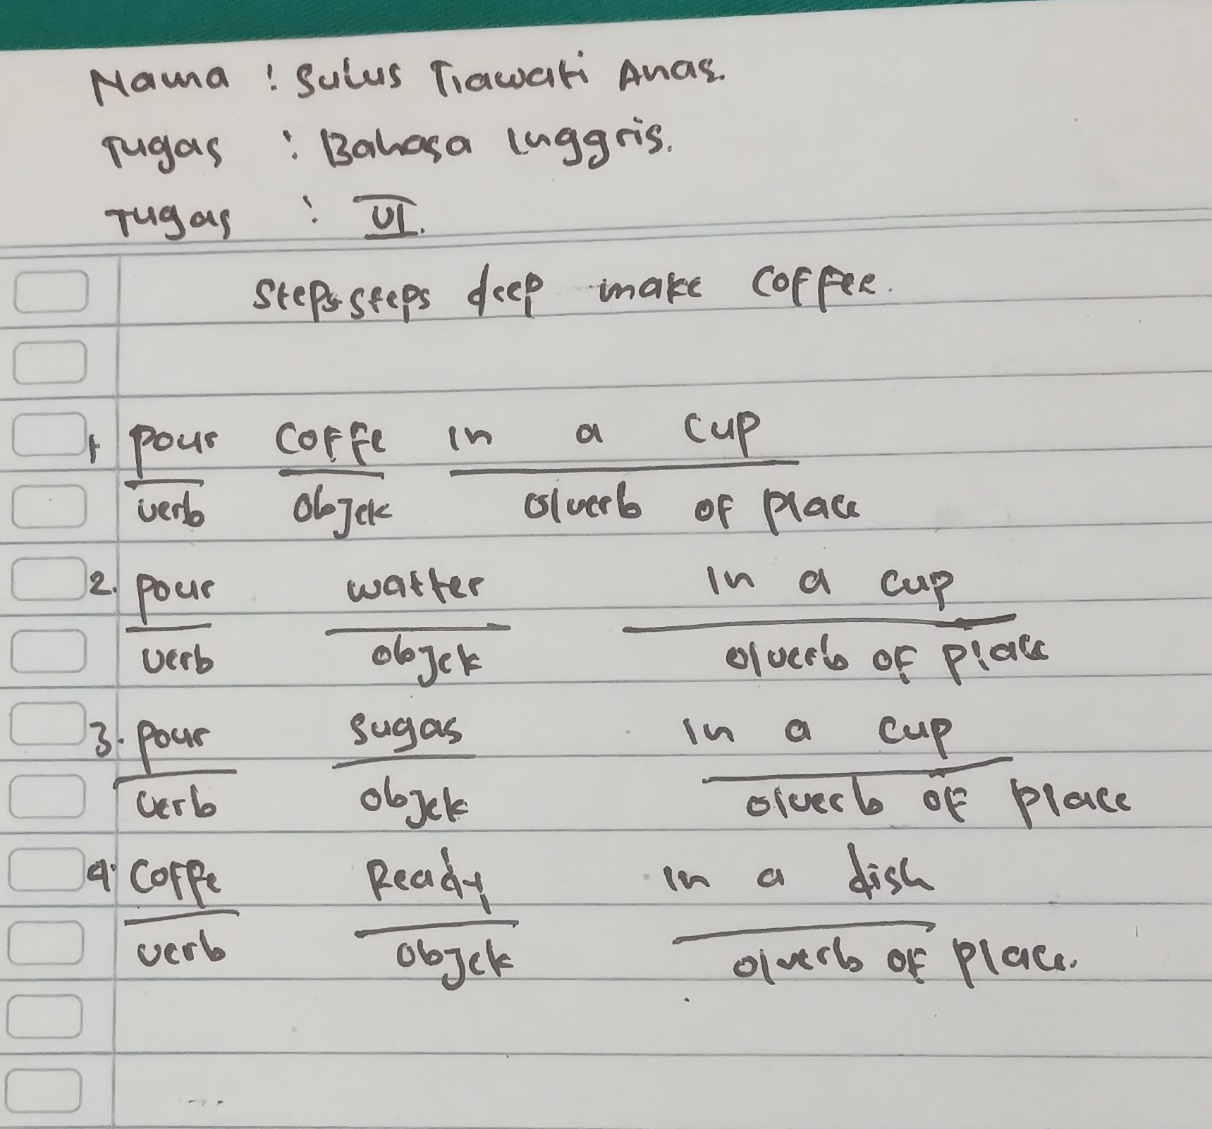 Nama : Sulus Tiawati Anas.
Tugas : Bahasa Inggris.
Tugas : VI.
Steps steps deep make coffee.
1 pour coffe in a cup
verb objek adverb of place
2. pour watter in a cup
verb objek adverb of place
3. pour sugar in a cup
verb objek adverb of place
4. coffe Ready in a dish
verb objek adverb of place.